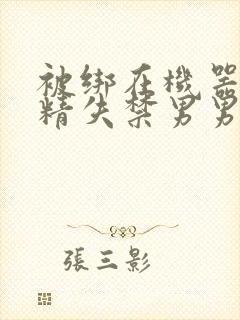 被绑在機器
精失禁男男
張三影